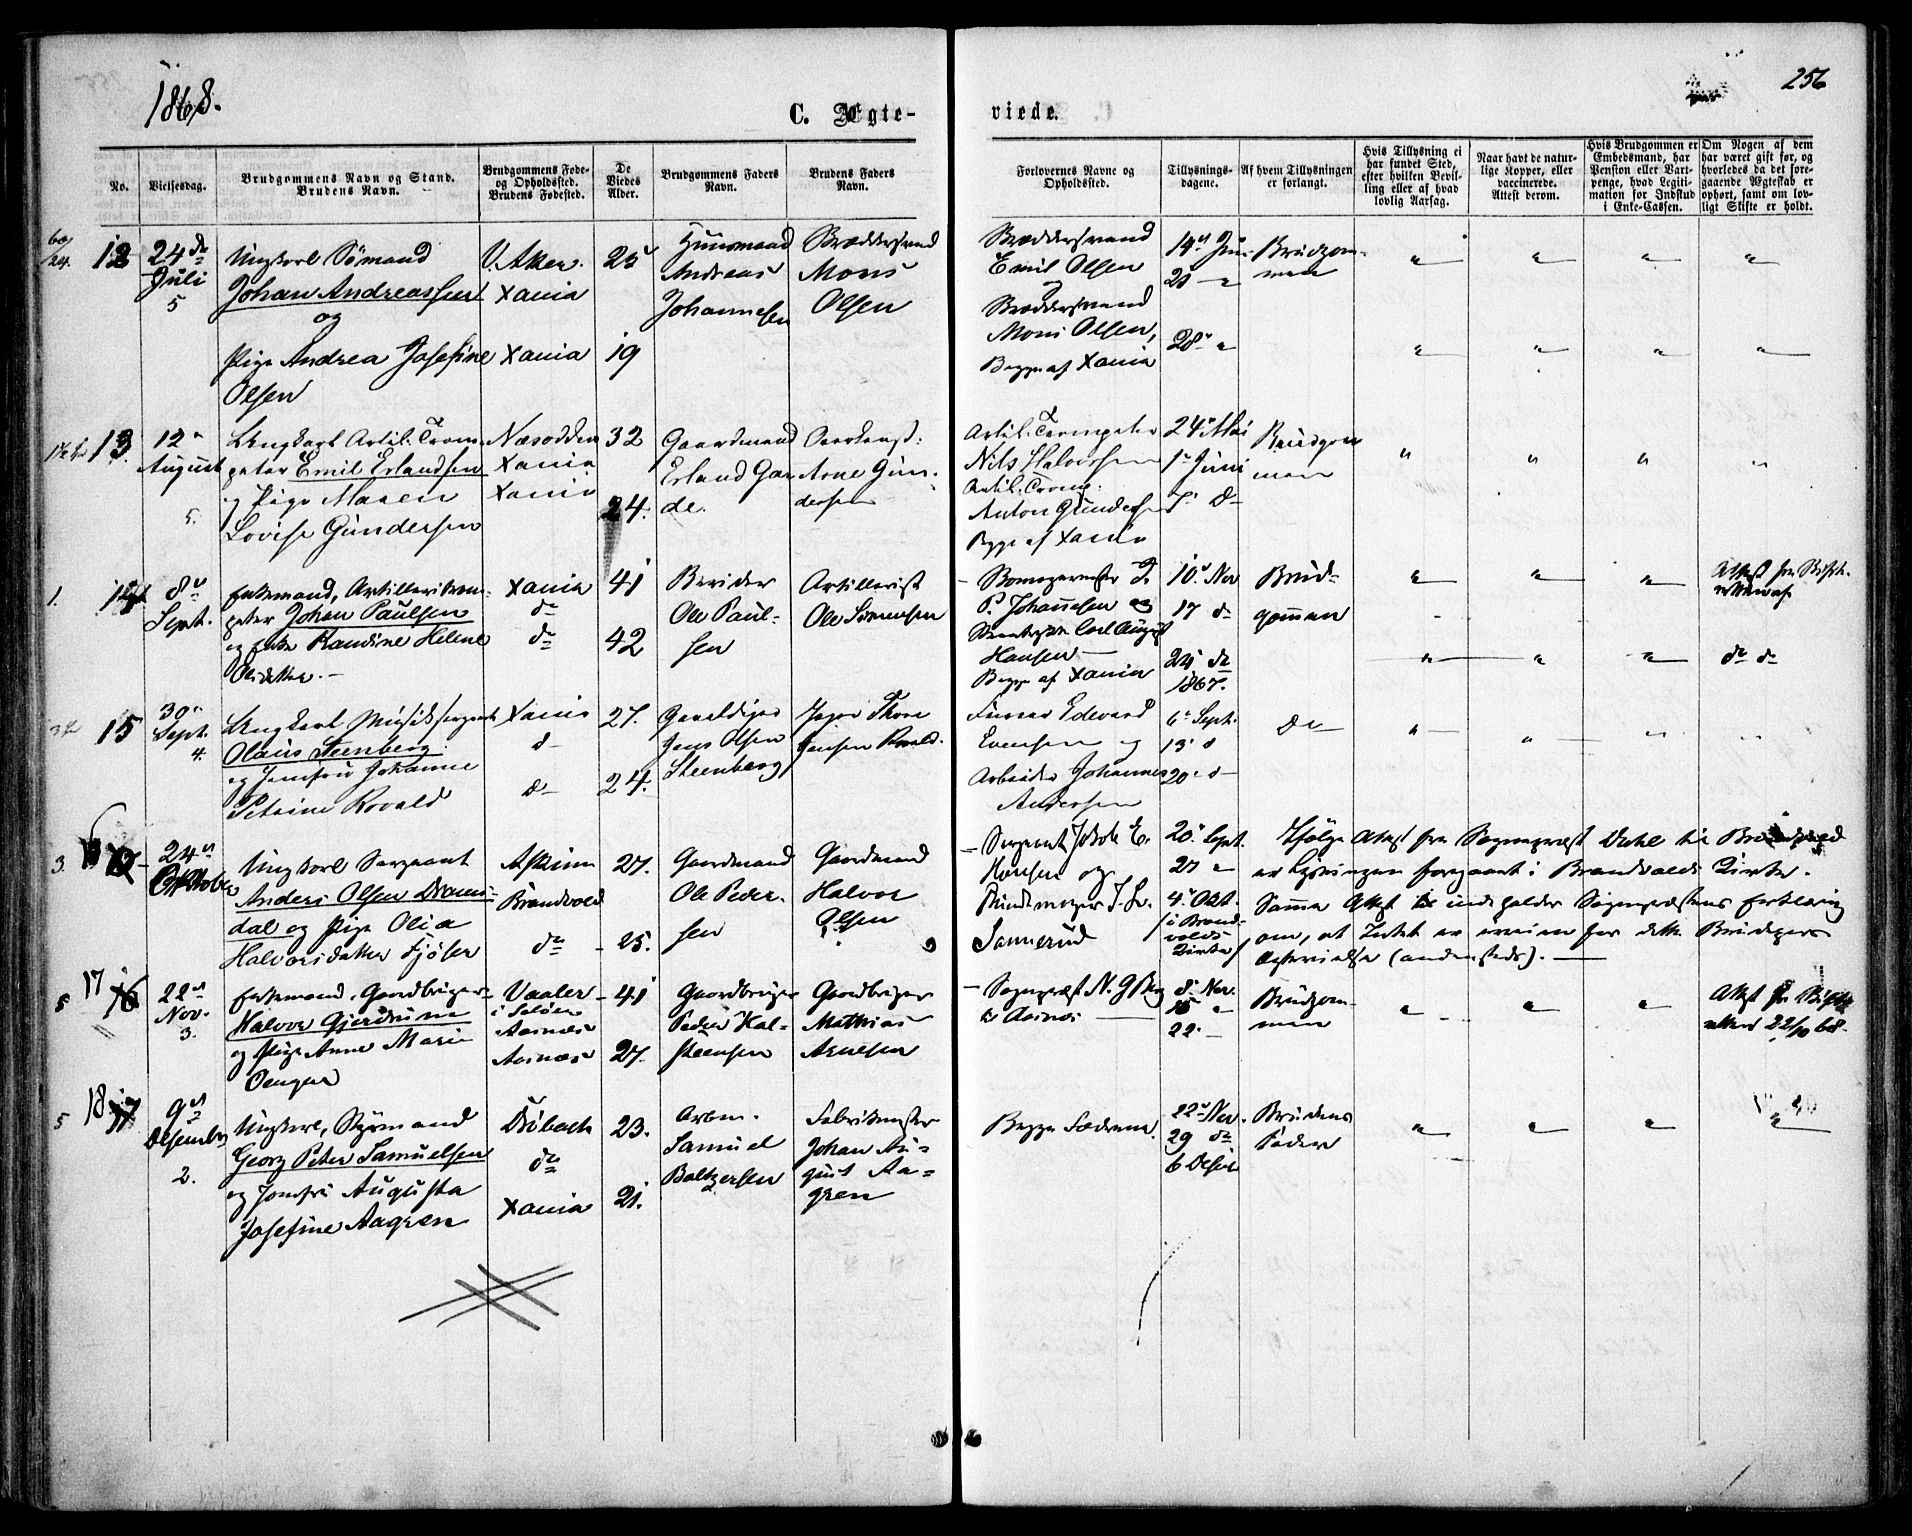 1868.
256
C. Ægte-
viede.
No.
Vielsesdag.
Brudgommens Navn og Stand.
Brudens Navn.
Brudgommens Føde-
og Opholdssted.
Brudens Fødested.
De
Viedes
Alder.
Brudgommens Faders
Navn.
Brudens Faders
Navn.
Forlovernes Navne og
Opholdssted.
Tillysnings-
dagene.
Af hvem Tillysningen
er forlangt.
Hvis Tillysning ei
har fundet Sted,
efter hvilken Bevil-
ling eller af hvad
lovlig Aarsag.
Naar havt de natur-
lige Kopper, eller
vaccinerede.
Attest derom.
Hvis Brudgommen er
Embedsmand, har
Pension eller Vart-
penge, hvad Legiti-
mation for Indskud
i Enke-Cassen.
Om Nogen af dem
har været gift før, og
hvorledes da det fore-
gaaende Ægteskab er
ophørt, samt om lov-
ligt Skifte er holdt.
12
24de
Juli
5
Ungkarl Sømand
Johan Andreassen
og
Pige Andrea Josefine
Olsen
V. Aker.
Xania
Xania
25
19
Huusmand
Andreas
Johannesen
Bræddestrand
Mons
Olsen
Bræddestrand
Emil Olsen
og
Bræddestrand
Mons Olsen,
Begge af Xania
14 Juni
21 "
28 "
Brudgom-
men
13
12
August
5.
Ungkarl Artil. Trom-
peter Emil Erlandsen
og Pige Maren
Lovise Gundersen
Næsodden
Xania
Xania
32
24.
Gaardmand
Erland Gar
de.
Arne Gun-
dersen
Artil. Trompeter
Nils Halvorsen
Artil. Tromp.
Anton Gundersen
Begge af Xania
24 Mai
1 Juni
7. D
Brudgom
men
1.
14
8
Sept.
Enkemand, Artilleritrom-
peter Johan Paulsen
og Enke Randine Helene
Olsdatter.
Xania
do
do
41
42
Berider
Ole Paul-
sen
Artillerist
Ole Sørensen
P. Johannesen og
Carl August
Hansen
Begge af Xania
10 Nov
17 do
24 do
1867.
Brud-
gommen
do do
15
30
Sept.
4.
Ungkarl Musiksergeant
Olaus Steenberg
og Jomfru Johanne
Petrine Rovald
Xania
d
d
27.
24.
Jens Olsen
Steenberg
Thore
Jensen Rovald.
Edvard
Evensen og
Arbeider Johannes
Andersen
6 Sept.
13 d
20 d
do
3.
24
Oktober
Ungkarl Sergeant
Anders Olsen Drams-
dal og Pige Olia
Halvorsdatter Fjøser
Askim
Brandvold
do
27.
25.
Gaardmand
Ole Peder-
sen
Gaardmand
Halvor
Olsen
Sergeant Jakob E.
Hansen og
Sannerud
20 Sept.
27 "
4. Okt.
(i Brand-
volds
Kirke)
Ifølge Attest fra Sogneprest Dahl til Brandvold
er Lysningen foregaaet i Brandvolds Kirke.
Samme Attest indeholder Sogneprestens Erklæring
om, at Intet er i veien for dette Brudepars
Ægtevielse (andensteds).
5
17
22
Nov.
3.
Enkemand, Gaardbruger
Halvor Gjerdrum
og Pige Anne Marie
Oengen
Vaaler
i Soløer
Aasnes
Aasnes
41
27.
Gaardbruger
Peder Hal-
steensen
Gaardbruger
Mathias
Arnesen
Sogneprest N. G. Berg
til Aasnes
8. Nov.
15 "
22.
Brudgom-
men
Attest fra Skifte
retten 22/10 68.
5
18
9
Desember
2.
Ungkarl, Styrmand
Georg Peter Samuelsen
og Jomfru Augusta
Josefine Aagren
Drøbach
do
Xania
23.
21.
Samuel
Baltzersen
Fabrikmester
Johan Au-
gust Aa-
gren
Begge Fædrene.
22 Nov.
29 do
6 Desbr
Brudens
Fader